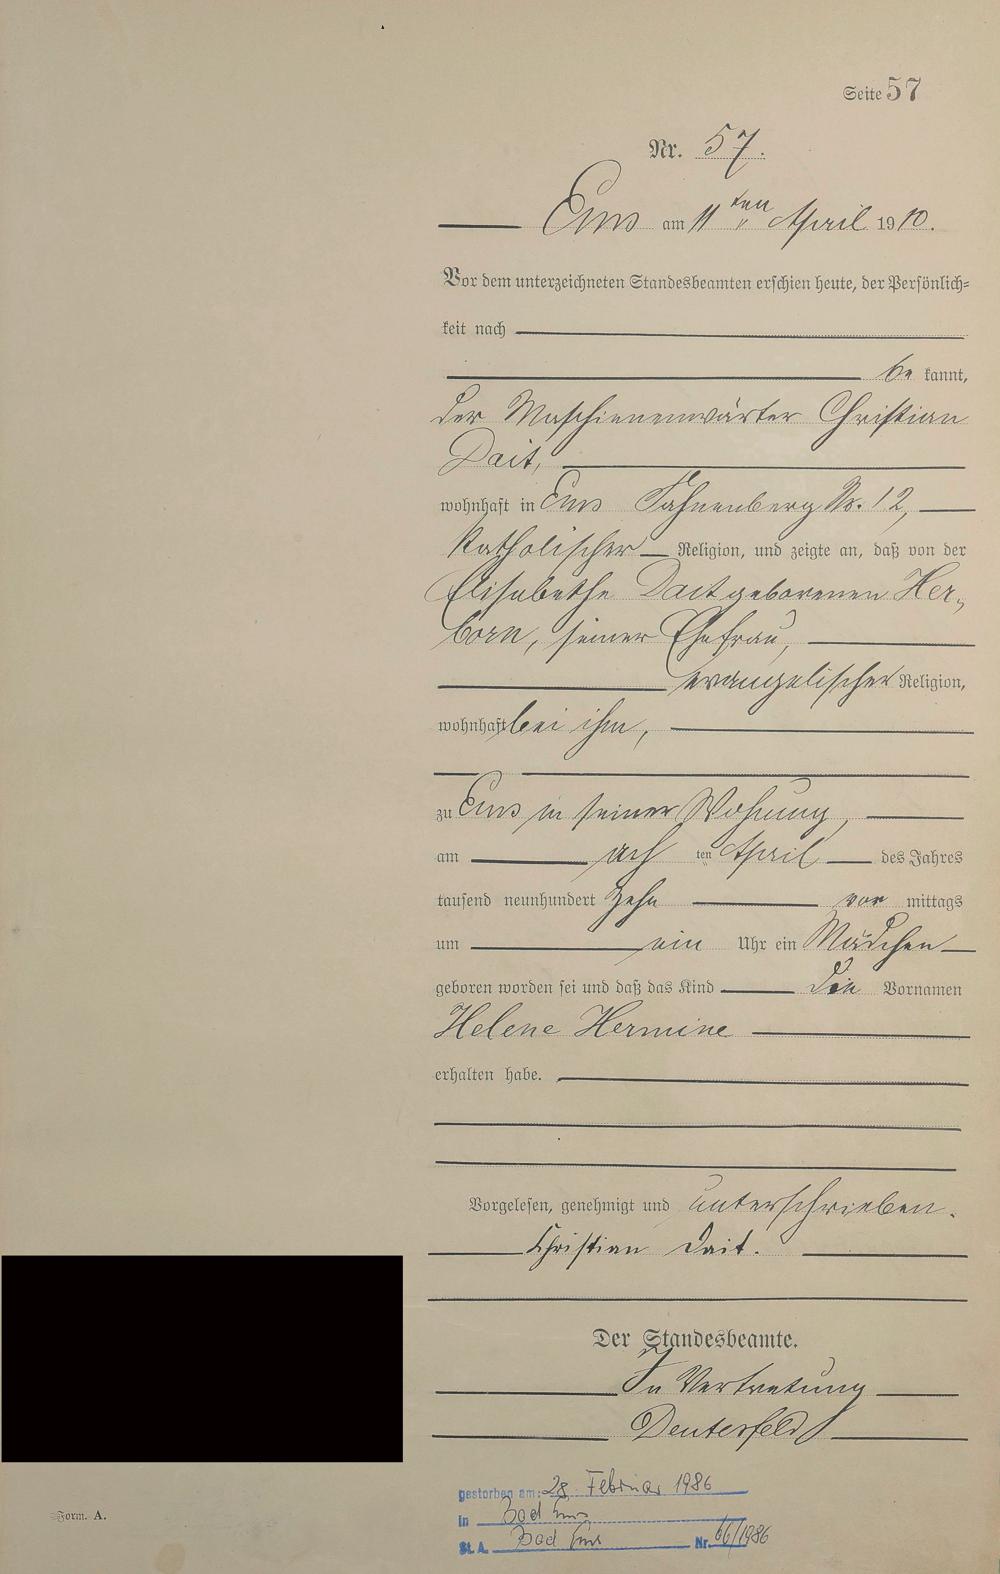 Seite 57
Nr. 57.
Ems am 11ten April 1910.
Vor dem unterzeichneten Standesbeamten erschien heute, der Persönlich-
keit nach
be kannt,
der Maschinenwärter Christian
Dait,
wohnhaft in Ems Fahnenberg No. 12,
katholischer Religion, und zeigte an, daß von der
Elisabethe Dait geborenen Her-
born, seiner Ehefrau,
evangelischer Religion,
wohnhaft bei ihm,
zu Ems in seiner Wohnung,
am acht ten April des Jahres
tausend neunhundert zehn vor mittags
um ein Uhr ein Mädchen
geboren worden sei und daß das Kind die Vornamen
Helene Hermine
erhalten habe.
Vorgelesen, genehmigt und unterschrieben.
Christian Dait.
Der Standesbeamte.
In Vertretung
Deuterfeld
gestorben am: 28. Februar 1986
in Bad Ems
St. A. Bad Ems Nr. 66/1986
Form. A.